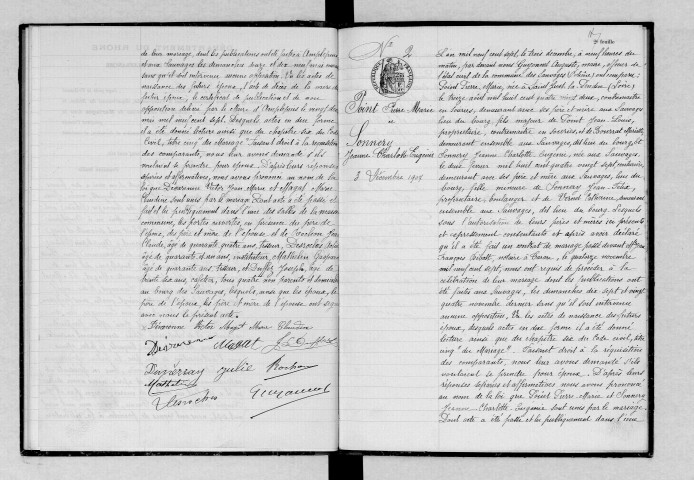 de leur mariage, dont les publications ont été faites à Amplepuis
et aux Sauvages les dimanches onze et dix
sans qu'il soit intervenu aucune opposition. Vu les actes de
naissance des futurs époux, l'acte de décès de la mère du
futur époux, le certificat de publication et de non
opposition délivré par le Maire d'Amplepuis le
mil neuf cent sept. Desquels actes en due forme
il a été donné lecture ainsi que du chapitre six du Code
Civil, titre cinq "du Mariage". Faisant droit à la réquisition
des comparants, nous leur avons demandé s'ils
veulent se prendre pour époux. D'après leurs réponses
séparées et affirmatives, nous avons prononcé au nom de la
loi que Dévarenne Victor Jean Marie et Magat Marie
Claudine sont unis par le mariage. Dont acte a été passé et
fait et lu publiquement dans l'une des salles de la maison
commune, les portes ouvertes, en présence du père de
l'époux, des père et mère de l'épouse et de
Claude, âgé de quarante quatre ans, tisseur, Desroches
âgé de quarante et un ans, instituteur, Mathelin Gaspard
âgé de quarante ans, tisseur, et Duffey Joseph, âgé de
trente six ans, cafetier, tous quatre non parents et demeurant
au bourg des Sauvages, lesquels, ainsi que les époux, le
père de l'époux, les père et mère de l'épouse ont signé
avec nous le présent acte.
Dévarenne Victor Magat Marie Claudine
Dévarenne Magat
Julie
Desroches
2e feuille
No 2
Point Pierre Marie
et
Sonnery
Jeanne Charlotte Eugénie
3 Décembre 1907
L'an mil neuf cent sept, le trois décembre, à neuf heures du
matin, par devant nous Guyonnet Auguste, maire, officier de
l'état civil de la commune des Sauvages (Rhône) ont comparu :
Point Pierre Marie, né à Saint Just la Pendue (Loire)
le onze août mil huit cent quatre vingt deux, contremaître
en soieries, demeurant avec ses père et mère aux Sauvages
lieu du bourg fils majeur de Point Jean Louis,
propriétaire, contremaître en soieries, et de
demeurant ensemble aux Sauvages, dit lieu du bourg, et
Sonnery Jeanne Charlotte Eugénie, née aux Sauvages,
le deux janvier mil huit cent quatre vingt sept,
demeurant avec ses père et mère aux Sauvages, lieu du
bourg, fille mineure de Sonnery Jean Félix,
propriétaire, boulanger et de Vernet Estienne, demeurant
ensemble aux Sauvages, dit lieu du Bourg. Lesquels
sous l'autorisation de leurs pères et mères ici présents
et expressément consentants et après avoir déclaré
qu'il a été fait un contrat de mariage passé devant Me
François notaire à Tarare, le quatorze novembre
mil neuf cent sept, nous ont requis de procéder à la
célébration de leur mariage dont les publications ont
été faites aux Sauvages, les dimanches dix sept et vingt
quatre novembre dernier sans qu'il soit intervenu
aucune opposition. Vu les actes de naissance des futurs
époux, desquels actes en due forme il a été donné
lecture ainsi que du chapitre six du Code civil, titre
cinq "du Mariage". Faisant droit à la réquisition
des comparants, nous leur avons demandé s'ils
veulent se prendre pour époux. D'après leurs
réponses séparées et affirmatives nous avons prononcé
au nom de la loi que Point Pierre Marie et Sonnery
Jeanne Charlotte Eugénie sont unis par le mariage.
Dont acte a été passé et lu publiquement dans l'une